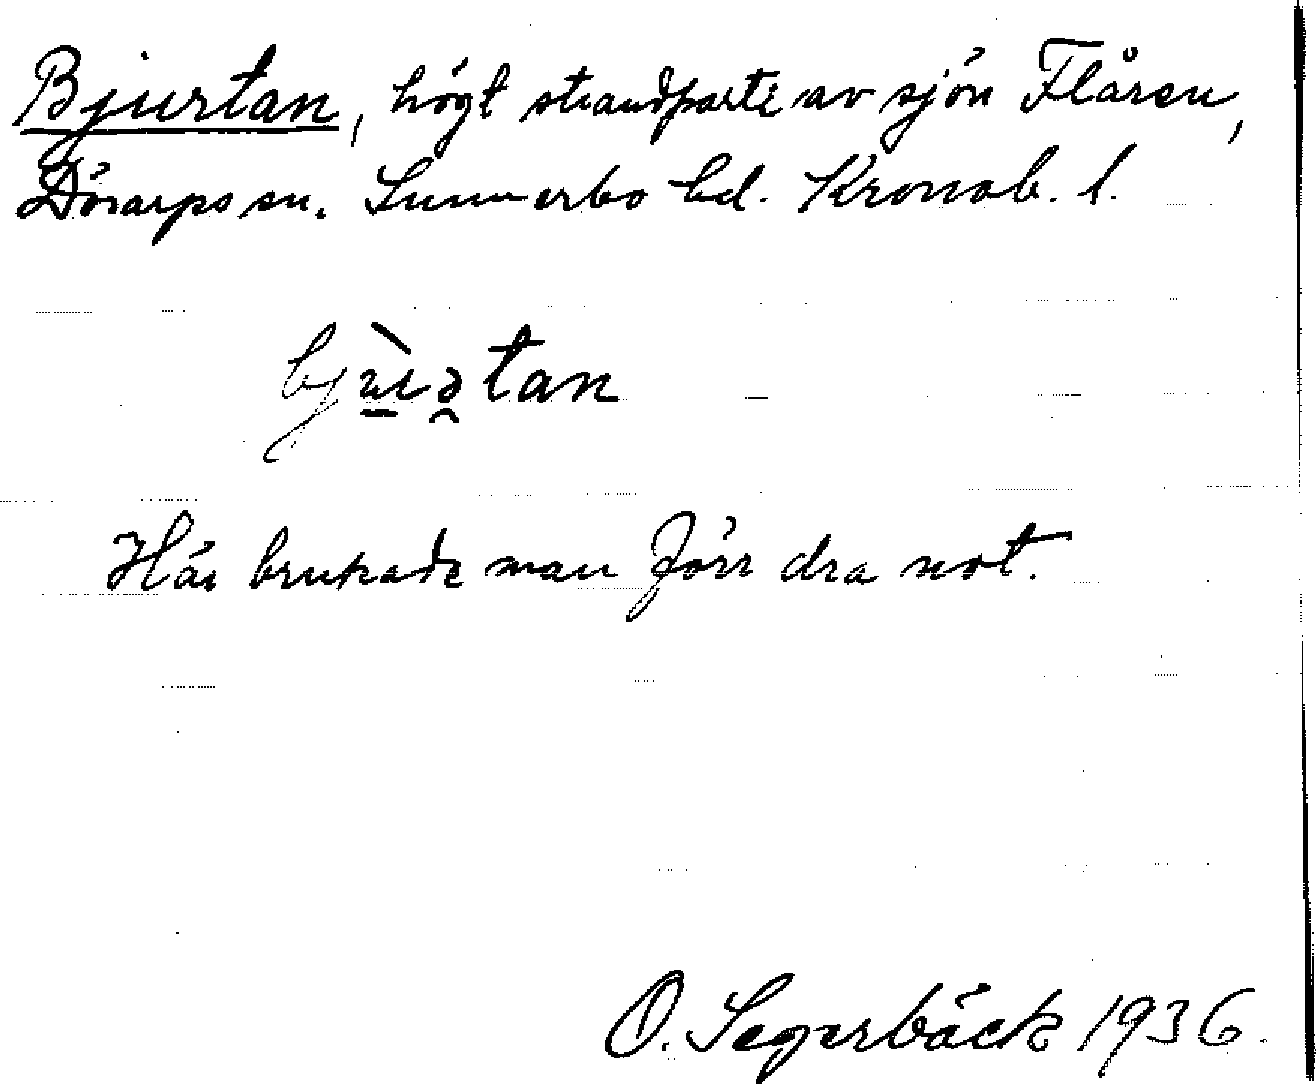 Bjurtan, högt strandparti av sjön Flåren,
Dörarps sn. Sunnerbo hd. Kronob. l.
bjùə̯tan
Här brukade man förr dra not.
O. Segerbäck 1936.